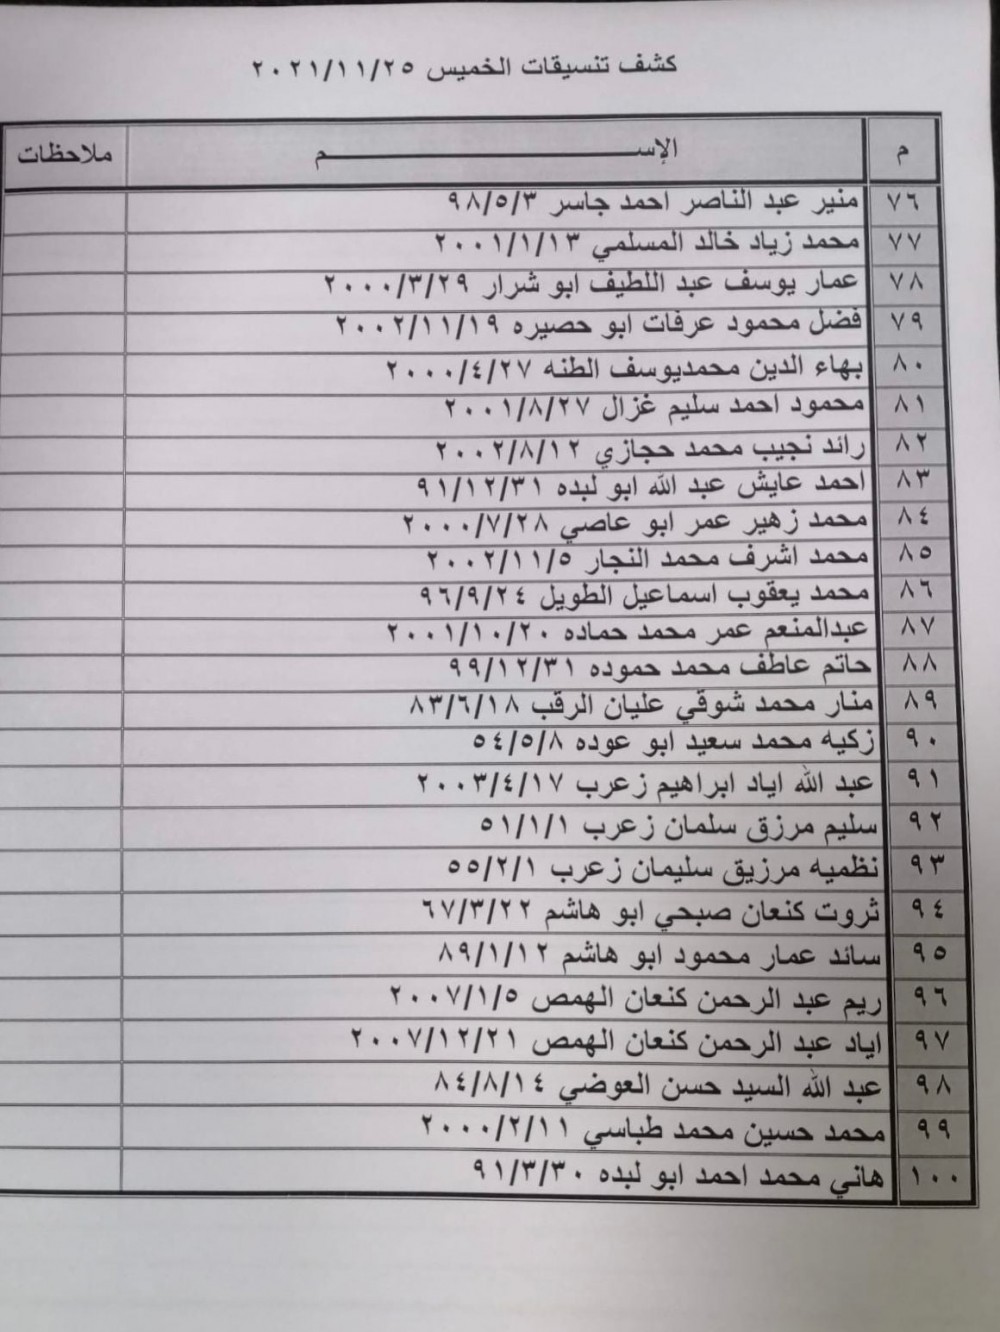 كشف تنسيقات الخميس ٢٠٢١/١١/٢٥
م الإســــــــم ملاحظات
٧٦ منير عبد الناصر احمد جاسر ٩٨/٥/٣
٧٧ محمد زياد خالد المسلمي ٢٠٠١/١/١٣
٧٨ عمار يوسف عبد اللطيف ابو شرار ٢٠٠٠/٣/٢٩
٧٩ فضل محمود عرفات ابو حصيره ٢٠٠٢/١١/١٩
٨٠ بهاء الدين محمديوسف الطنه ٢٠٠٠/٤/٢٧
٨١ محمود احمد سليم غزال ٢٠٠١/٨/٢٧
٨٢ رائد نجيب محمد حجازي ٢٠٠٢/٨/١٢
٨٣ احمد عايش عبد الله ابو لبده ٩١/١٢/٣١
٨٤ محمد زهير عمر ابو عاصي ٢٠٠٠/٧/٢٨
٨٥ محمد اشرف محمد النجار ٢٠٠٢/١١/٥
٨٦ محمد يعقوب اسماعيل الطويل ٩٦/٩/٢٤
٨٧ عبدالمنعم عمر محمد حماده ٢٠٠١/١٠/٢٠
٨٨ حاتم عاطف محمد حموده ٩٩/١٢/٣١
٨٩ منار محمد شوقي عليان الرقب ٨٣/٦/١٨
٩٠ زكيه محمد سعيد ابو عوده ٥٤/٥/٨
٩١ عبد الله اياد ابراهيم زعرب ٢٠٠٣/٤/١٧
٩٢ سليم مرزق سلمان زعرب ٥١/١/١
٩٣ نظميه مرزيق سليمان زعرب ٥٥/٢/١
٩٤ ثروت كنعان صبحي ابو هاشم ٦٧/٣/٢٢
٩٥ سائد عمار محمود ابو هاشم ٨٩/١/١٢
٩٦ ريم عبد الرحمن كنعان الهمص ٢٠٠٧/١/٥
٩٧ اياد عبد الرحمن كنعان الهمص ٢٠٠٧/١٢/٢١
٩٨ عبد الله السيد حسن العوضي ٨٤/٨/١٤
٩٩ محمد حسين محمد طباسي ٢٠٠٠/٢/١١
١٠٠ هاني محمد احمد ابو لبده ٩١/٣/٣٠